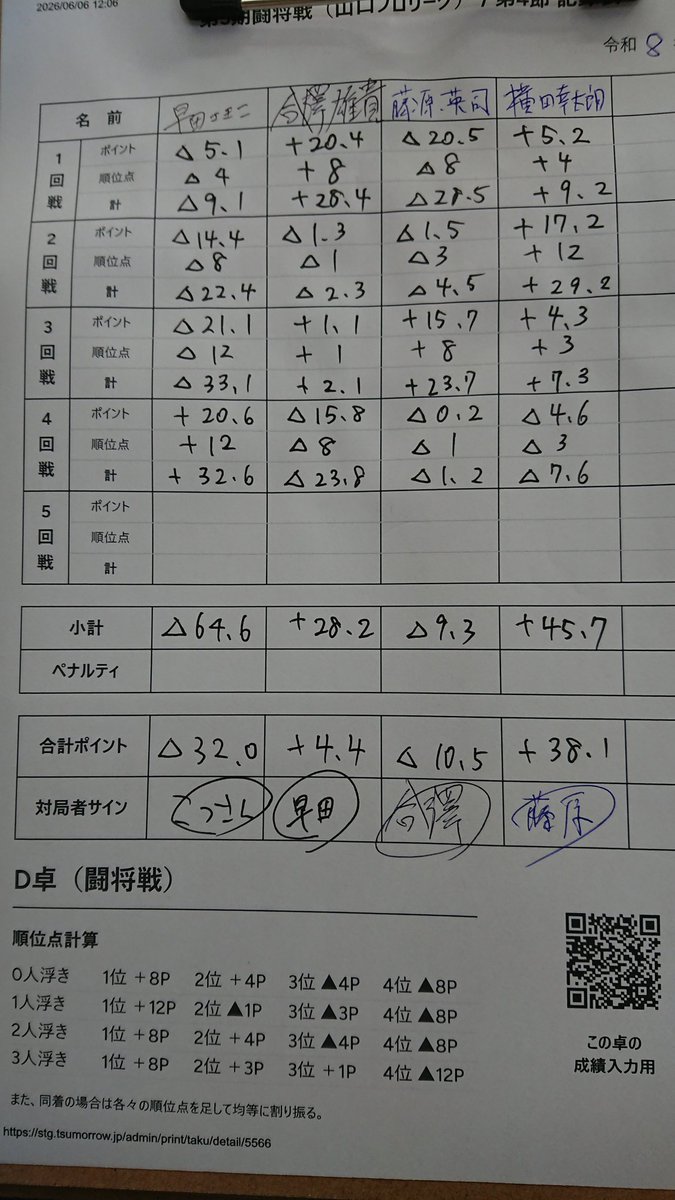 2026/06/06 12:06
第3期闘将戦（山口プロリーグ） / 第4節 記録
令和 8
名 前 早田 合澤雄貴 藤原英司 横田幸太朗
1回戦 ポイント △5.1 +20.4 △20.5 +5.2
順位点 △4 +8 △8 +4
計 △9.1 +28.4 △28.5 +9.2
2回戦 ポイント △14.4 △1.3 △1.5 +17.2
順位点 △8 △1 △3 +12
計 △22.4 △2.3 △4.5 +29.2
3回戦 ポイント △21.1 +1.1 +15.7 +4.3
順位点 △12 +1 +8 +3
計 △33.1 +2.1 +23.7 +7.3
4回戦 ポイント +20.6 △15.8 △0.2 △4.6
順位点 +12 △8 △1 △3
計 +32.6 △23.8 △1.2 △7.6
5回戦 ポイント
順位点
計
小計 △64.6 +28.2 △9.3 +45.7
ペナルティ
合計ポイント △32.0 +4.4 △10.5 +38.1
対局者サイン 早田 合澤 藤原
D卓（闘将戦）
順位点計算
0人浮き 1位 +8P 2位 +4P 3位 ▲4P 4位 ▲8P
1人浮き 1位 +12P 2位 ▲1P 3位 ▲3P 4位 ▲8P
2人浮き 1位 +8P 2位 +4P 3位 ▲4P 4位 ▲8P
3人浮き 1位 +8P 2位 +3P 3位 +1P 4位 ▲12P
この卓の
成績入力用
また、同着の場合は各々の順位点を足して均等に割り振る。
https://stg.tsumorrow.jp/admin/print/taku/detail/5566